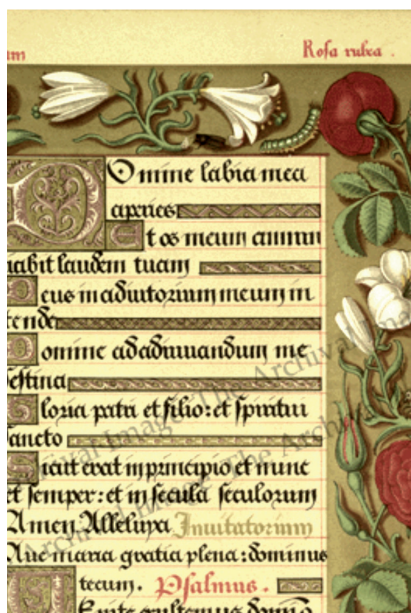 um Rosa rubea.
Domine labia mea
aperies
Et os meum annun
tiabit laudem tuam
Deus in adiutorium meum in
tende
Domine ad adiuuandum me
festina
Gloria patri et filio: et spiritui
sancto
Sicut erat in principio et nunc
et semper: et in secula seculorum
Amen. Alleluya Inuitatorium
Aue maria gratia plena: dominus
tecum. Psalmus.